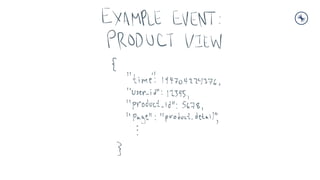 EXAMPLE EVENT:
PRODUCT VIEW
{
"time": 1447042
"user_id": 12345,
"product_id": 5678,
"page": "product_detail",
⋮
}